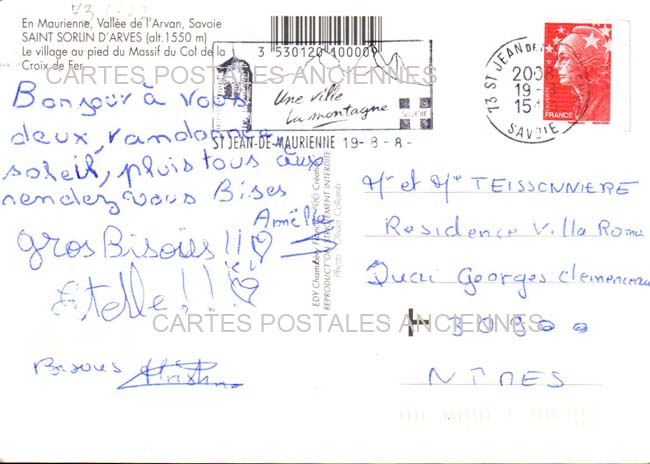 73
En Maurienne, Vallée de l'Arvan, Savoie
SAINT SORLIN D'ARVES (alt.1550 m)
Le village au pied du Massif du Col de la
Croix de Fer
3 530120 100000
CARTES POSTALES ANCIENNES
Une ville
La montagne
SAVOIE
ST JEAN-DE-MAURIENNE 19-8-8-
73 ST JEAN DE
2008
19-8
15
SAVOIE
FRANCE
Bonjour à vous
deux, randonnée
soleil, pluis tous aux
rendez vous Bises
Amélie
gros Bisous !!
Estelle !!
Bisous
EDY Chambéry France
REPRODUCTION STRICTEMENT INTERDITE
Mr et Me TEISSONNIERE
Residence Villa Roma
Quai Georges Clemenceau
30900
NIMES
CARTES POSTALES ANCIENNES